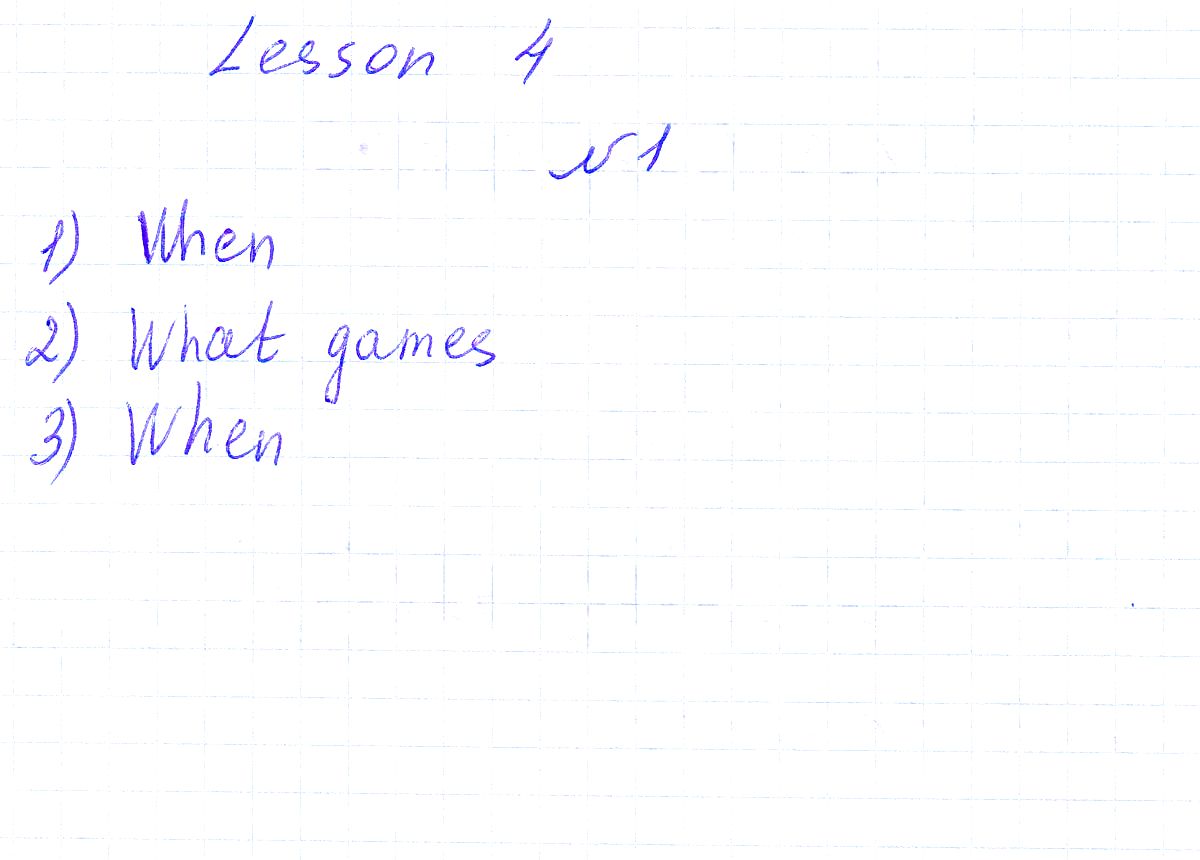 Lesson 4
№1
1) When
2) What games
3) When